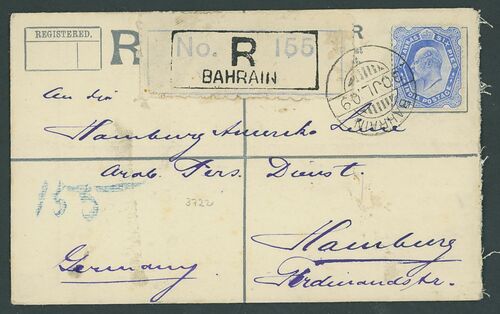 REGISTERED.
R
No. R 155
BAHRAIN
R
BAHRAIN
JL 09
An die
Hamburg Amerika Linie
Arab. Pers. Dienst.
155
3722
Hamburg
Germany
Ferdinandstr.